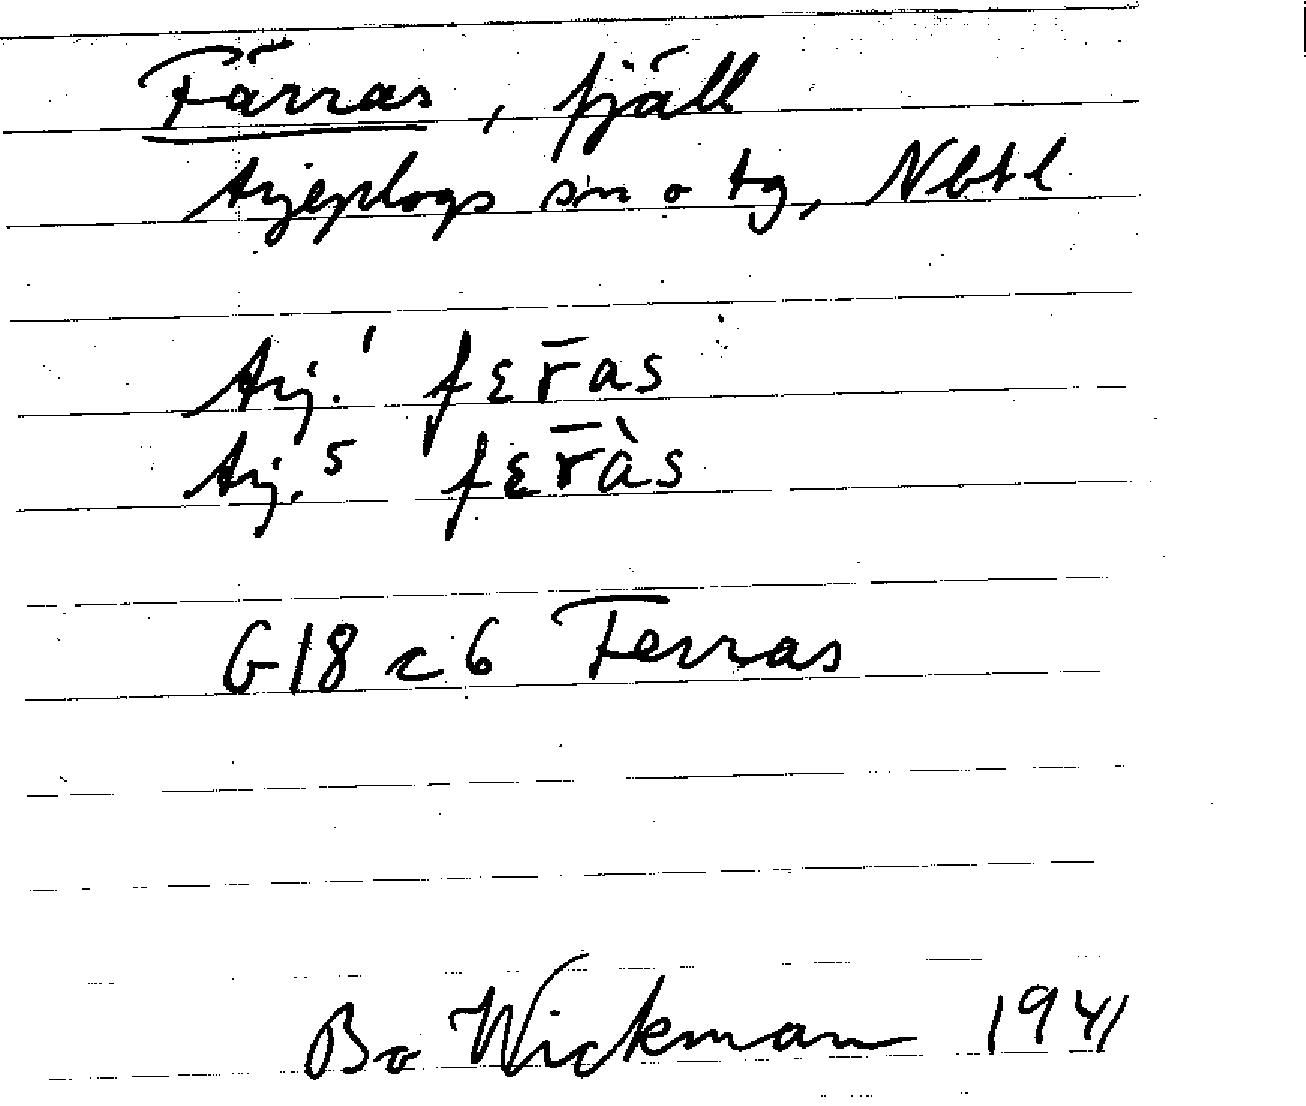 Färras, fjäll
Arjeplogs sn o tg, Nbtl
Arj.¹ fɛr̄as
Arj.⁵ fɛr̄às
G18 c 6 Ferras
Bo Wickman 1941